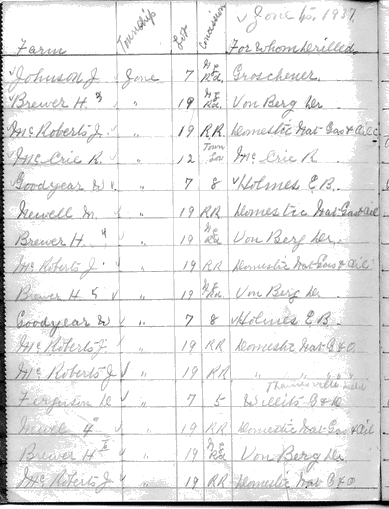 Zone to, 1937
Farm Township Lot Concession For Whom Drilled
Johnson J Zone 7 Groschener
Brewer H. 3 " 19 Von Berg Dr
McRoberts J. " 19 RR Domestic Nat-Gas & Oil
McCrie R. " 12 Town Lot McCrie R
Goodyear W " 7 8 Holmes E B
Newell M. " 19 RR Domestic Nat-Gas & Oil
Brewer H. 4 " 19 Von Berg Dr
McRoberts J. " 19 RR Domestic Nat-Gas & Oil
Brewer H 5 " 19 Von Berg Dr
Goodyear W " 7 8 Holmes E B.
McRoberts J " 19 RR Domestic Nat G & O.
McRoberts J " 19 RR " " " "
Thamesville
Ferguson D " 7 5 Willits G & O.
Newell 4 " 19 RR Domestic Nat-Gas & Oil
Brewer H " 19 Von Berg Dr
McRoberts J " 19 RR Domestic Nat G & O